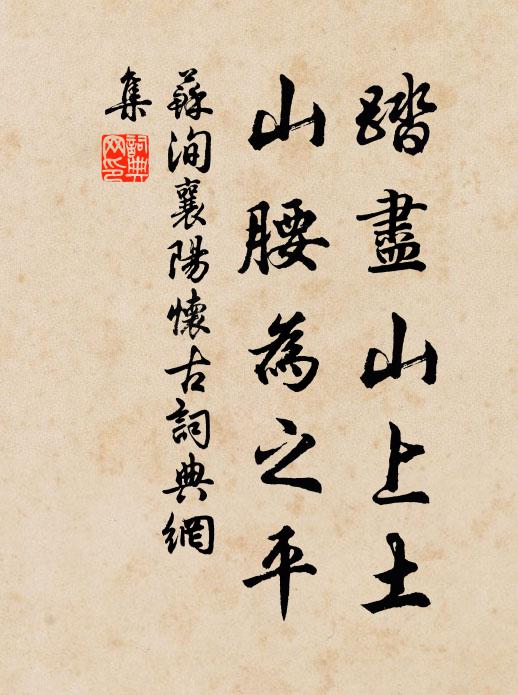 踏盡山上土
山腰為之平
蘇洵襄陽懷古詞典網
集
詞典
网印